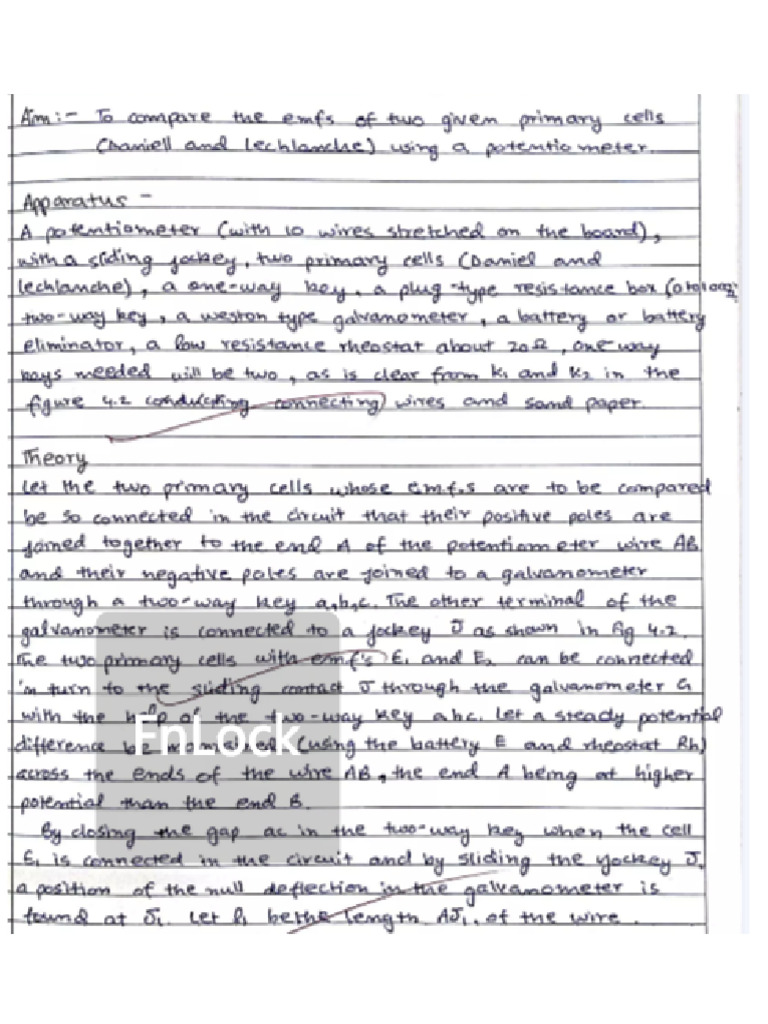 Aim :- To compare the emfs of two given primary cells
(Daniell and Lechlanche) using a potentiometer.
Apparatus -
A potentiometer (with 10 wires stretched on the board),
with a sliding jockey, two primary cells (Daniel and
lechlanche), a one-way key, a plug-type resistance box (0 to
two-way key, a weston type galvanometer, a battery or battery
eliminator, a low resistance rheostat about 20Ω, one way
keys needed will be two, as is clear from K1 and K2 in the
figure 4.2 conducting connecting) wires and sand paper.
Theory
Let the two primary cells whose e.m.f.s are to be compared
be so connected in the circuit that their positive poles are
joined together to the end A of the potentiometer wire AB
and their negative poles are joined to a galvanometer
through a two-way key a,b,c. The other terminal of the
galvanometer is connected to a jockey J as shown in fig 4.2.
The two primary cells with emf's E1 and E2 can be connected
in turn to the sliding contact J through the galvanometer G
with the help of the two-way key abc. Let a steady potential
difference be (using the battery E and rheostat Rh)
across the ends of the wire AB, the end A being at higher
potential than the end B.
By closing the gap ac in the two-way key when the cell
E1 is connected in the circuit and by sliding the jockey J,
a position of the null deflection in the galvanometer is
found at J1. Let l1 be the length AJ1, of the wire.
EnLock